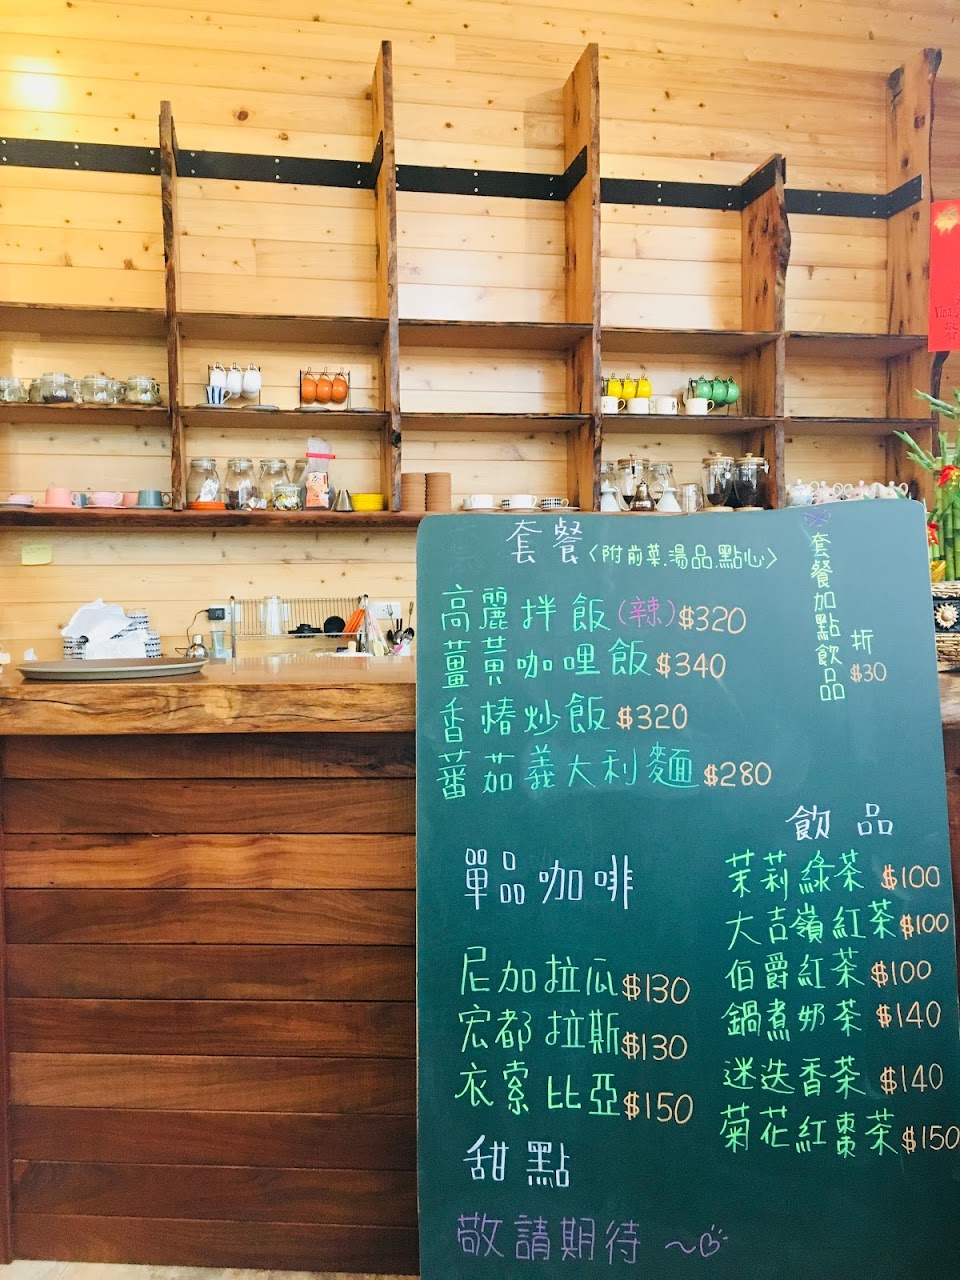 套餐〈附前菜.湯品.點心〉
高麗拌飯(辣)$320
薑黃咖哩飯$340
香椿炒飯$320
蕃茄義大利麵$280
套餐加點飲品
折
$30
單品咖啡
尼加拉瓜$130
宏都拉斯$130
衣索比亞$150
甜點
敬請期待~
飲品
茉莉綠茶 $100
大吉嶺紅茶$100
伯爵紅茶$100
鍋煮奶茶 $140
迷迭香茶 $140
菊花紅棗茶$150